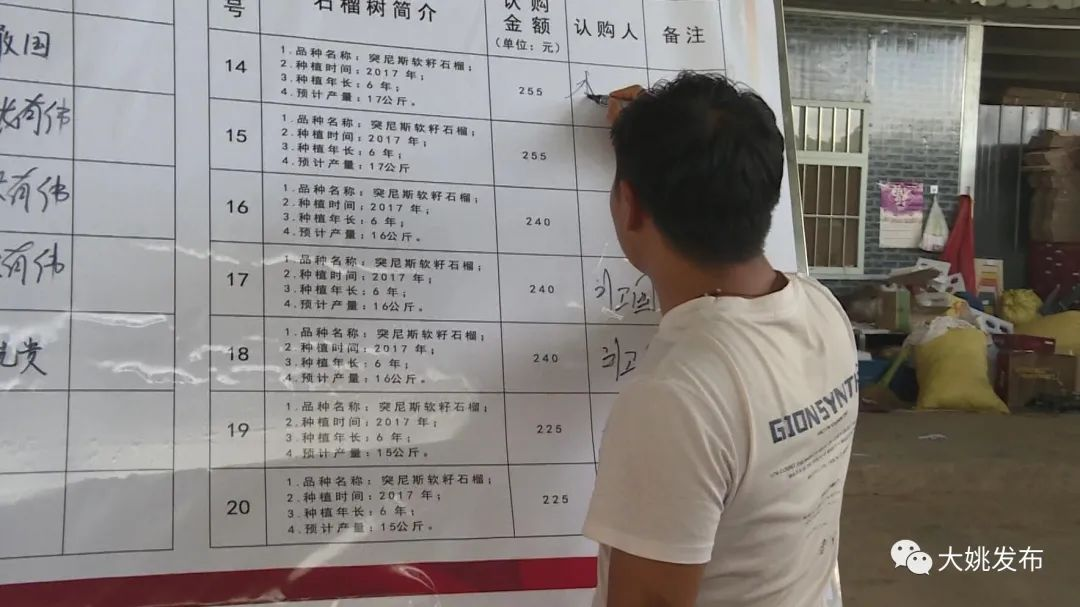 号
石榴树简介
认购
金额
(单位:元)
认购人
备注
国
14
1.品种名称:突尼斯软籽石榴;
2.种植时间:2017年;
3.种植年长:6年;
4.预计产量:17公斤。
255
有伟
15
1.品种名称:突尼斯软籽石榴;
2.种植时间:2017年;
3.种植年长:6年;
4.预计产量:17公斤
255
有伟
16
1.品种名称:突尼斯软籽石榴;
2.种植时间:2017年;
3.种植年长:6年;
4.预计产量:16公斤。
240
有伟
17
1.品种名称:突尼斯软籽石榴;
2.种植时间:2017年;
3.种植年长:6年;
4.预计产量:16公斤。
240
贵
18
1.品种名称:突尼斯软籽石榴;
2.种植时间:2017年;
3.种植年长:6年;
4.预计产量:16公斤。
240
19
1.品种名称:突尼斯软籽石榴;
2.种植时间:2017年;
3.种植年长:6年;
4.预计产量:15公斤。
225
20
1.品种名称:突尼斯软籽石榴;
2.种植时间:2017年;
3.种植年长:6年;
4.预计产量:15公斤。
225
GIONSYNTH
大姚发布